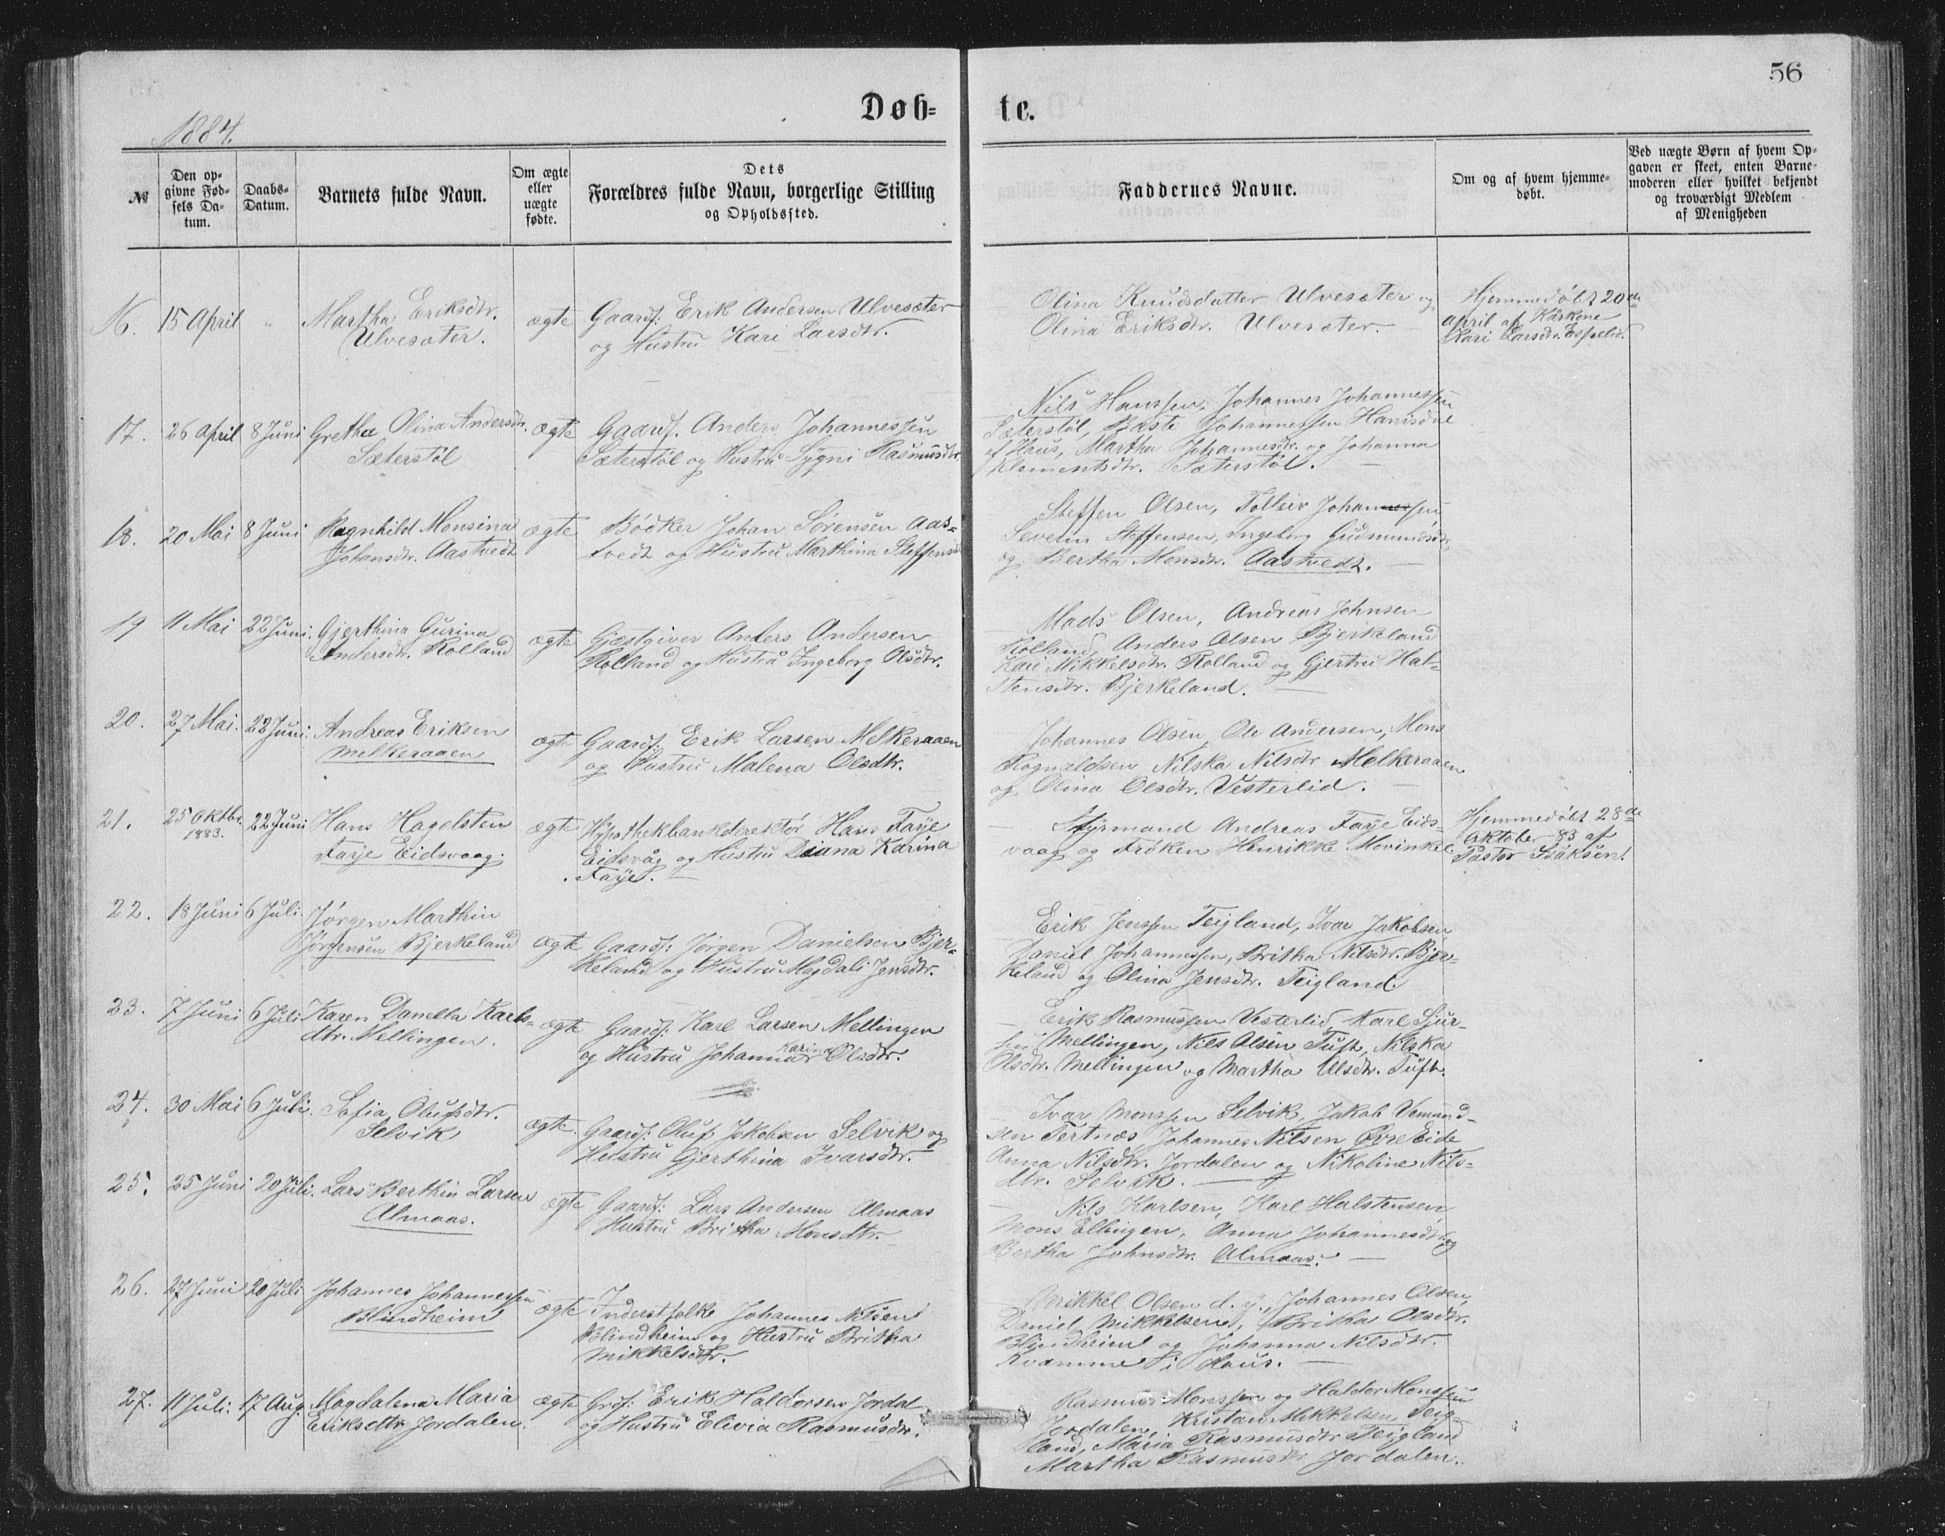 56
Døb=
te.
1884.
№
Den op-
givne Fød-
sels Da-
tum.
Daabs-
Datum.
Barnets fulde Navn.
Om ægte
eller
uægte
fødte.
Dets
Forældres fulde Navn, borgerlige Stilling
og Opholdssted.
Faddernes Navne.
Om og af hvem hjemme-
døbt.
Ved uægte Børn af hvem Op-
gaven er skeet, enten Barne-
moderen eller hvilket bekjendt
og troværdigt Medlem
af Menigheden
16. 15 April "
Martha Eriksdtr.
Ulvesæter.
ægte
Gaardf. Erik Andersen Ulvesæter
og Hustru Kari Larsdtr.
Olina Knudsdatter Ulvesæter og
Olina Eriksdtr. Ulvesæter.
Hjemmedøbt 20de
April af
Kari Larsdtr. Espelid.
17. 26 April 8 Juni
Grethe Olina Andersdtr.
Sæterstøl
ægte
Gaardf. Anders Johannessen
Sæterstøl og Hustru Sygni Rasmusdtr.
Nils Hanssen, Johannes Johannessen
Sæterstøl, Baste Johannessen
af Haus, Martha Johannesdtr. og Johanna
Klementsdtr. Sæterstøl.
18. 20 Mai 8 Juni
Ragnhild Monsina
Johansdr. Aastvedt
ægte
Bødker Johan Sørensen Aas-
tvedt og Hustru Marthina Steffensd
Steffen Olsen, Tolleiv Johannessen
Severin Steffensen, Ingeborg Gudmundsdtr.
og Bertha Monsdtr. Aastvedt.
19 11 Mai 22 Juni.
Gjerthina Gurina
Andersdtr. Rolland
ægte
Gjæstgiver Anders Andersen
Rolland og Hustru Ingeborg Olsdtr.
Mads Olsen, Andreas Johnsen
Rolland, Anders Olsen Bjerkeland
Kari Mikkelsdtr. Rolland og Gjertru Hal-
stensdtr. Bjerkeland.
20. 27 Mai. 22 Juni.
Andreas Eriksen
Melkeraaen
ægte
Gaardf. Erik Larsen Melkeraaen
og Hustru Malena Olsdtr.
Johannes Olsen, Ole Andersen, Mons
Rognaldsen Nilska Nilsdtr Melkeraaen
og Olina Olsdtr. Vesterlid.
21. 25 Oktbr. 22 Juni
1883.
Hans Hagelsten
Faye Eidsvaag.
ægte
Hypothekbankdirektør Hans Faye
Eidsvåg og Hustru Diana Karina
Faye.
Styrmand Andreas Faye Eids-
vaag og Frøken Henrikke Movinkel
Hjemmedøbt 28de
Oktober 83 af
Pastor Isaksen.
22. 18 Juni 6 Juli.
Jørgen Marthin
Jørgensen Bjerkeland
ægte
Gaardf: Jørgen Danielsen Bjer-
keland og Hustru Magdali Jensdtr.
Erik Jenssen Teigland, Ivar Jakobsen
Daniel Johannessen, Britha Nilsdtr. Bjer-
keland og Olina Jensdtr. Teigland.
23. 7 Juni 6 Juli
Karen Danella Karls-
dtr. Mellingen.
ægte
Gaardf: Karl Larsen Mellingen
og Hustru Johanna Karina Olsdtr.
Erik Rasmussen Vesterlid, Karl Sjur-
sen Mellingen, Nils Olsen Tuft, Nilska
Olsdtr. Mellingen og Martha Olsdtr. Tuft.
24. 30 Mai 6 Juli.
Sofia Olufsdtr.
Selvik
ægte.
Gaardf: Oluf Jakobsen Selvik og
Hustru Gjerthina Ivarsdtr.
Ivar Monssen Selvik, Jakob Vemund-
sen Tertnæs, Johannes Nilsen Øvre Eide
Anna Nilsdtr. Jordalen og Nikoline Nils-
dtr. Selvik.
25. 25 Juni 20 Juli.
Lars Berthin Larsen
Almaas.
ægte
Gaardf: Lars Andersen Almaas
Hustru Britha Monsdtr.
Nils Karlsen, Karl Halstensen,
Mons Ellingen, Anna Johannesdtr og
Bertha Johnsdtr. Almaas.
26. 27 Juni 20 Juli
Johannes Johannessen
Blindheim
ægte
Inderstfolke Johannes Nilsen
Blindheim og Hustru Britha
Mikkelsdtr.
Mikkel Olsen d.y., Johannes Olsen,
Daniel Mikkelsen, Britha Olsdtr.
Blindheim og Johanna Nilsdtr.
Kvamme i Haus.
27. 11 Juli. 17 Aug.
Magdalena Maria
Eriksdtr Jordalen.
ægte
Grdf: Erik Haldorsen Jordal
og Hustru Elivia Rasmusdtr.
Rasmus Monssen og Haldor Monssen
Jordalen, Kristian Mikkelsen Teig-
land, Maria Rasmusdtr Teigland
Martha Rasmusdtr Jordalen.